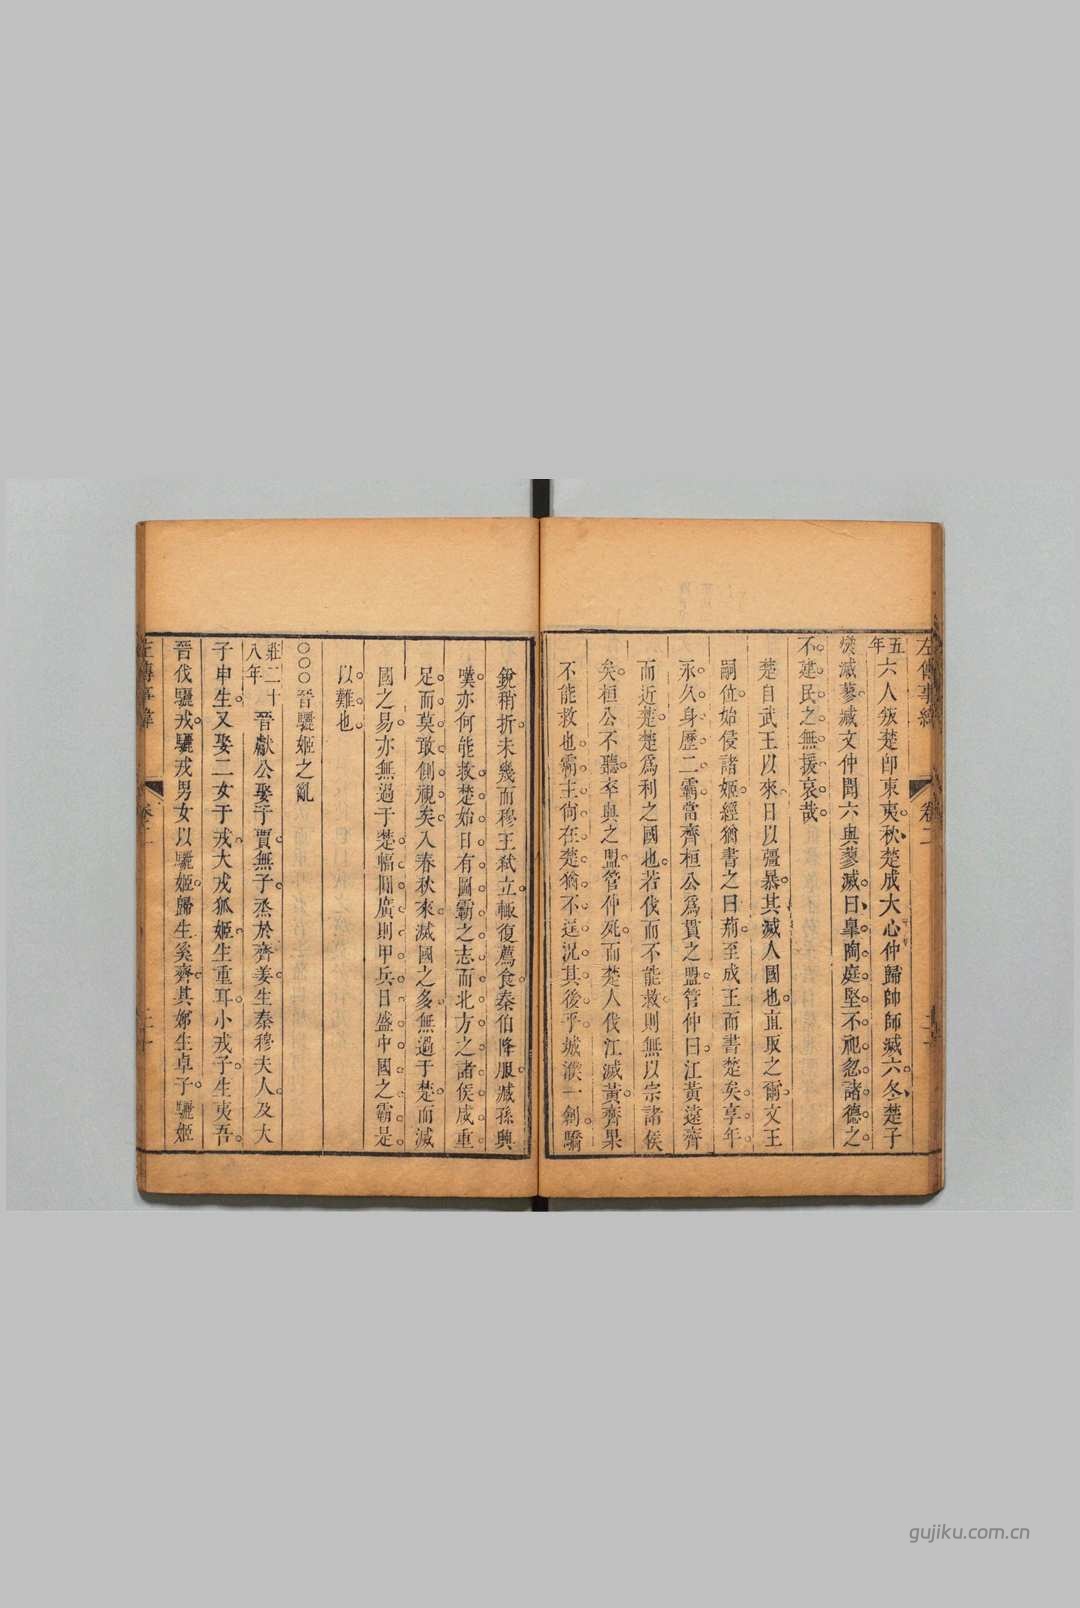 左傳事緯
卷二
五年
六人叛楚卽東夷秋楚成大心仲歸帥師滅六冬楚子
燮滅蓼臧文仲聞六與蓼滅曰皐陶庭堅不祀忽諸德之
不建民之無援哀哉
楚自武王以來日以彊暴其滅人國也直取之爾文王
嗣位始侵諸姬經猶書之曰荊至成王而書楚矣享年
永久身歷二霸當齊桓公爲貫之盟管仲曰江黃遠齊
而近楚楚爲利之國也若伐而不能救則無以宗諸侯
矣桓公不聽卒與之盟管仲死而楚人伐江滅黃齊果
不能救也霸主尙在楚猶不逞況其後乎城濮一創驕
銳稍折未幾而穆王弒立輙復薦食秦伯降服臧孫興
嘆亦何能救楚始日有圖霸之志而北方之諸侯咸重
足而莫敢側視矣入春秋來滅國之多無過于楚而滅
國之易亦無過于楚幅圓廣則甲兵日盛中國之霸是
以難也
○○○晉驪姬之亂
莊二十八年
晉獻公娶于賈無子烝於齊姜生秦穆夫人及大
子申生又娶二女于戎大戎狐姬生重耳小戎子生夷吾
晉伐驪戎驪戎男女以驪姬歸生奚齊其娣生卓子驪姬
左傳事緯
gujiku.com.cn